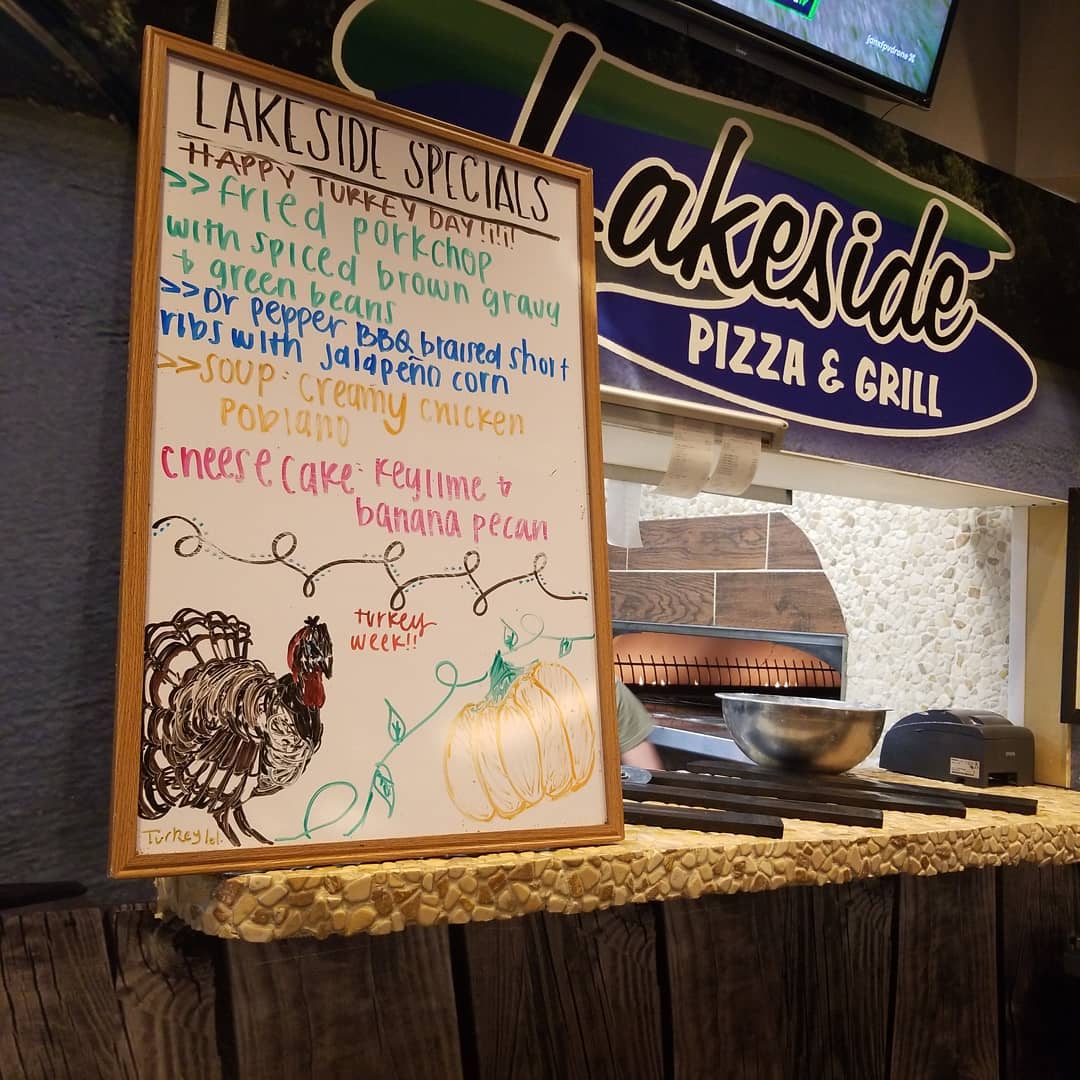 LAKESIDE SPECIALS
HAPPY TURKEY DAY!i!i!
>>fried porkchop
with spiced brown gravy
+ green beans
>>Dr pepper BBQ braised short
ribs with jalapeño corn
>>soup: creamy chicken
poblano
cheese cake: keylime +
banana pecan
turkey
week!!
Turkey lol
Lakeside
PIZZA & GRILL
EPSON